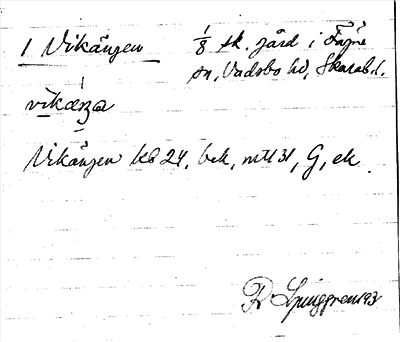 1 Vikängen 1/8 sk. järd i Fägre
sn, Vadsbo hd, Skarab.l.
vikæŋa
Vikängen kb 24, bek, mtl 31, G, ek.
R Ljunggren 193